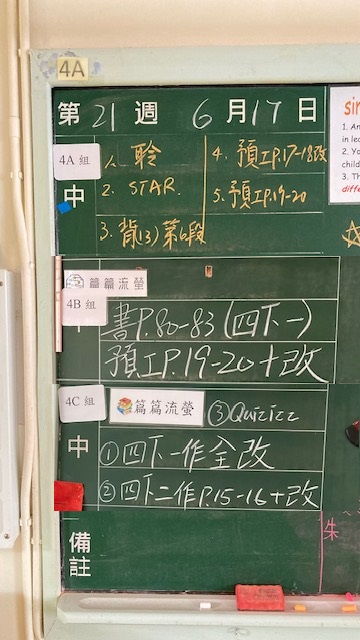 4A
第 21 週 6 月 17 日
4A 組
中
1. 聆
2. STAR.
3. 背(3)第6段
4. 預工P.17-18改
5. 預工P.19-20
篇篇流螢
4B 組
中
書P.80-83(四下一)
預工P.19-20+改
4C 組
中
篇篇流螢
③Quizizz
①四下一作全改
②四下二作P.15-16+改
備註
朱
1. An
in lea
2. Yo
child
3. Th